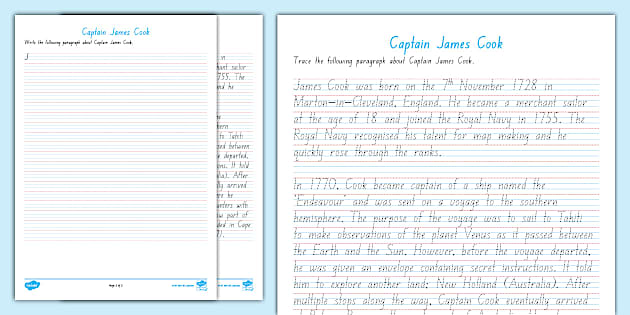 Captain James Cook
Write the following paragraph about Captain James Cook.
J
in
chant sailor
755. The
nd he
to Tahiti
sed between
departed,
ons. It told
lia). After
ly arrived
re he
nters with
w part of
ded in Cape
Page 1 of 2
Captain James Cook
Trace the following paragraph about Captain James Cook.
James Cook was born on the 7th November 1728 in
Marton-in-Cleveland, England. He became a merchant sailor
at the age of 18 and joined the Royal Navy in 1755. The
Royal Navy recognised his talent for map making and he
quickly rose through the ranks.
In 1770, Cook became captain of a ship named the
'Endeavour' and was sent on a voyage to the southern
hemisphere. The purpose of the voyage was to sail to Tahiti
to make observations of the planet Venus as it passed between
the Earth and the Sun. However, before the voyage departed,
he was given an envelope containing secret instructions. It told
him to explore another land: New Holland (Australia). After
multiple stops along the way, Captain Cook eventually arrived